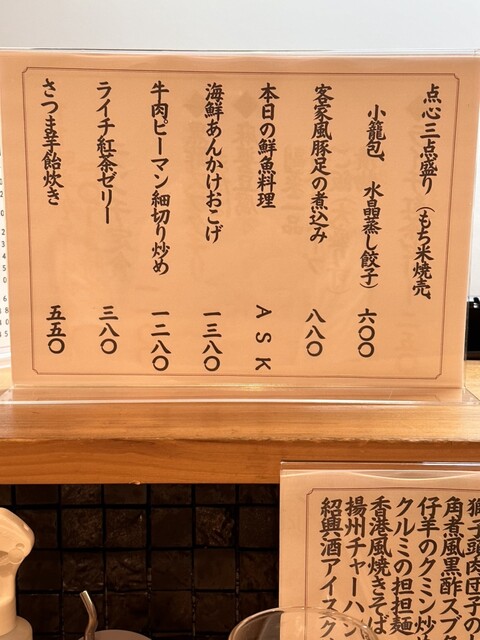 点心三点盛り（もち米焼売、
小籠包、水晶蒸し餃子）六〇〇
客家風豚足の煮込み 八八〇
本日の鮮魚料理 ASK
海鮮あんかけおこげ 一三八〇
牛肉ピーマン細切り炒め 一二八〇
ライチ紅茶ゼリー 三八〇
さつま芋飴炊き 五五〇
獅子頭肉団子の
角煮風黒酢スブ
仔羊のクミン炒
クルミの担担麺
香港風焼きそば
揚州チャーハン
紹興酒アイスク